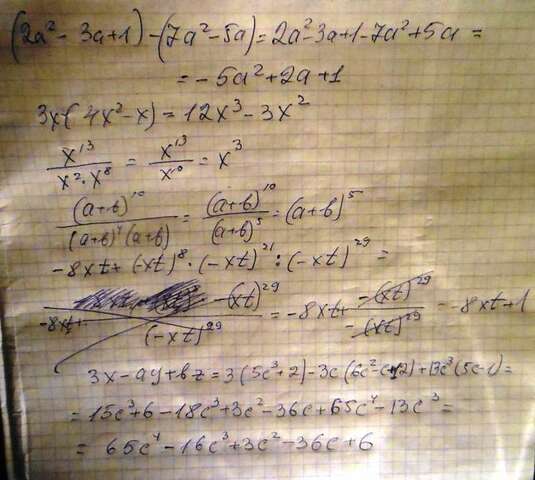 (2a² - 3a+1) - (7a² - 5a) = 2a² - 3a+1 - 7a² + 5a =
= - 5a² + 2a + 1
3x · (4x² - x) = 12x³ - 3x²
x¹³ / x² · x⁸ = x¹³ / x¹⁰ = x³
(a+b)¹⁰ / (a+b)⁴ (a+b) = (a+b)¹⁰ / (a+b)⁵ = (a+b)⁵
-8xt + (-xt)⁸ · (-xt)²¹ : (-xt)²⁹ =
-8xt + -(xt)²⁹ / (-xt)²⁹ = -8xt + -(xt)²⁹ / -(xt)²⁹ = -8xt+1
3x - ay + bz = 3(5c³+2) - 3c(6c² - c+12) + 13c³(5c-1) =
= 15c³ + 6 - 18c³ + 3c² - 36c + 65c⁴ - 13c³ =
= 65c⁴ - 16c³ + 3c² - 36c + 6